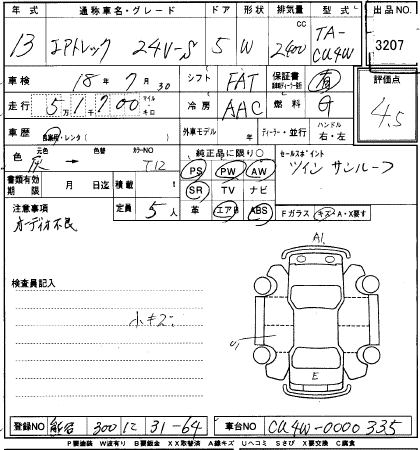 年式 通称車名・グレード ドア 形状 排気量 型式 出品NO.
13 エアトレック 24V-S 5 W 2400 CC TA-CU4W 3207
車検 18年 7月 30 シフト FAT 保証書 有 評価点
走行 51700 マイル キロ 冷房 AAC 燃料 G 4.5
車歴 自家用・レンタ ( ) 外車モデル 年 ディーラー・並行 ハンドル 右・左
色 元色 灰 → 色替 カラーNO T12 純正品に限り○ セールスポイント
書類有効期限 月 日迄 積載 t PS PW AW ツインサンルーフ
定員 5人 SR TV ナビ
注意事項 革 エアB ABS Fガラス キズ・A・X要す
オーディオ不良
検査員記入 A1
小キズ
U1
E
登録NO 300 31-64 車台NO CU4W-0000335
P要塗装 W波有り B要鈑金 XX取替済 A線キズ Uヘコミ Sさび X要交換 C腐食